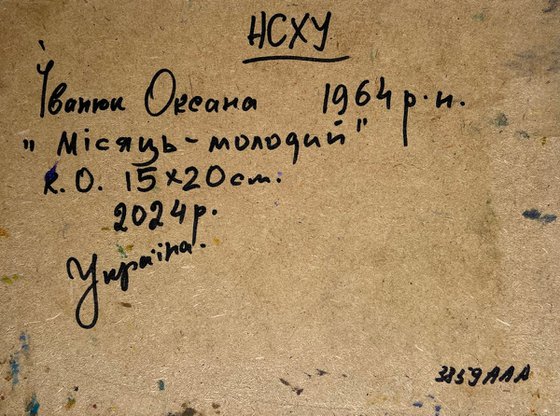 НСХУ
Іванюк Оксана 1964 р.н.
"Місяць-молодий"
к.о. 15х20см.
2024р.
Україна.
3859ААА